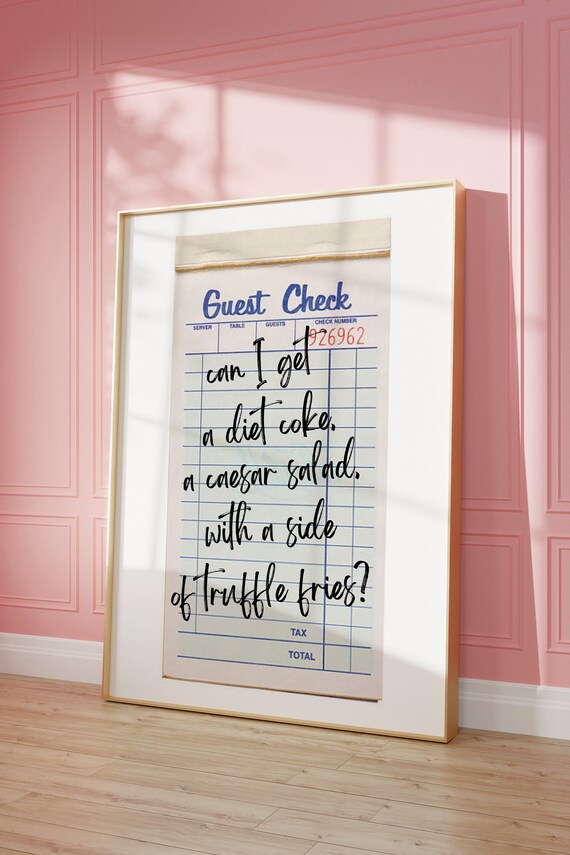 Guest Check
SERVER TABLE GUESTS CHECK NUMBER
926962
can I get
a diet coke,
a caesar salad,
with a side
of truffle fries?
TAX
TOTAL